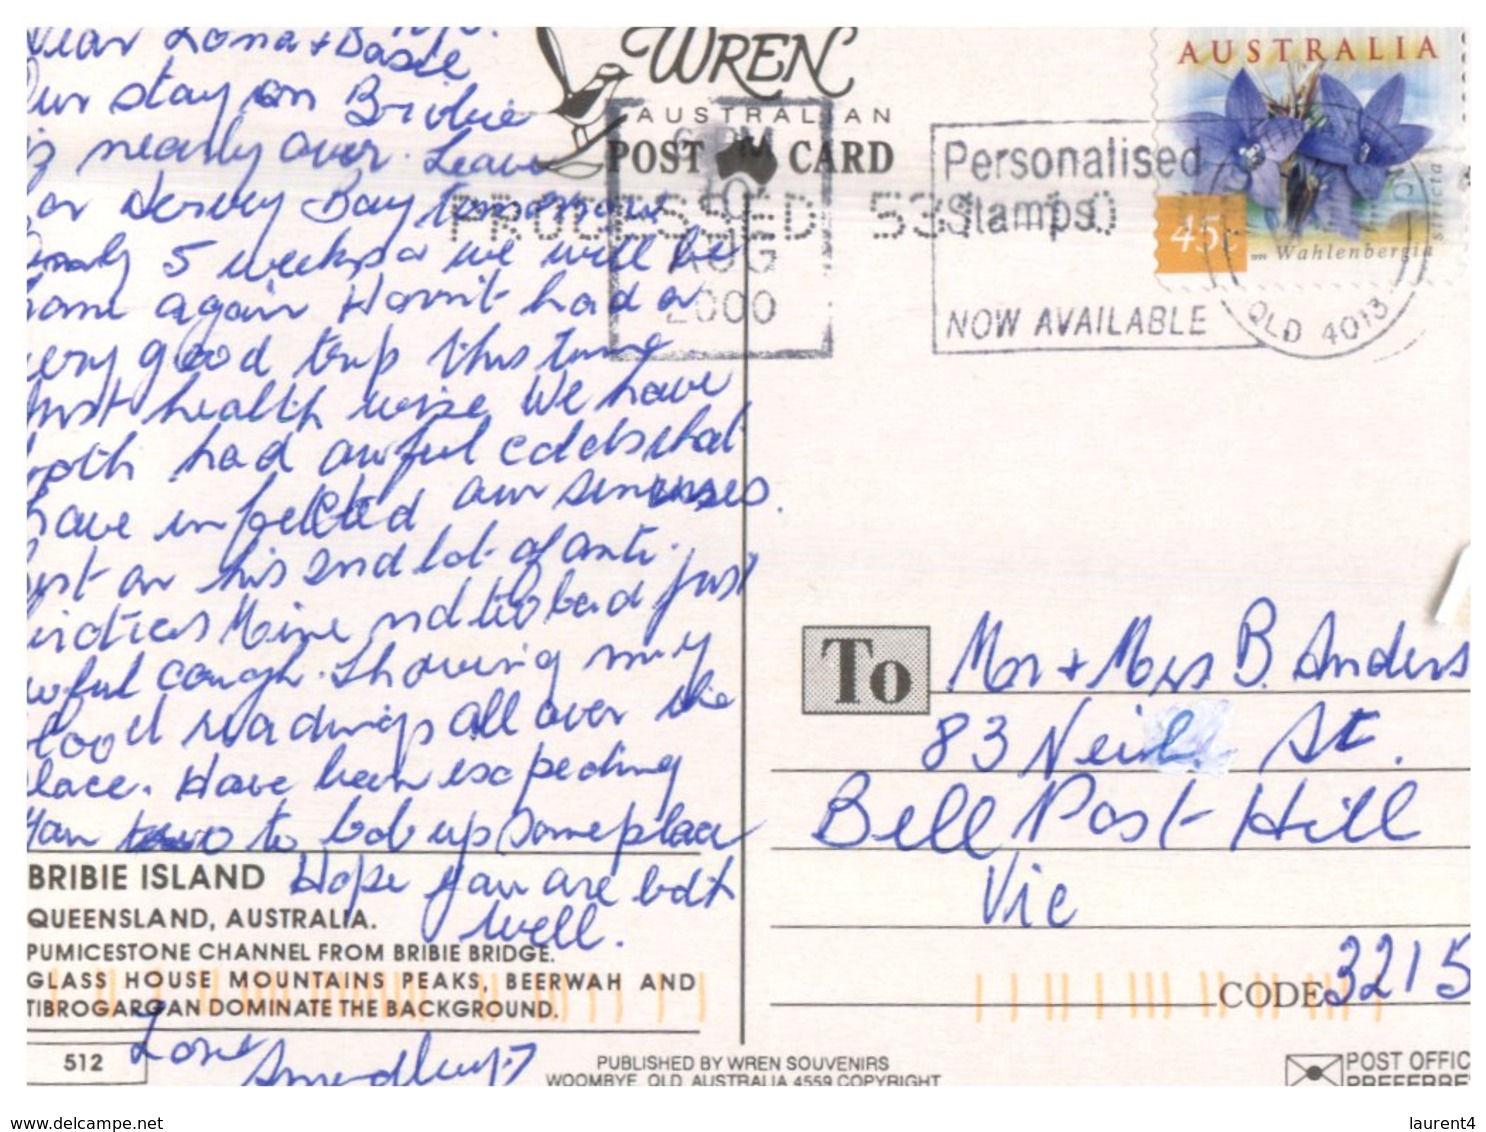 Dear Lorna + Basil
Our stay on Bribie
is nearly over. Leave
for Hervey Bay tomorrow
Only 5 weeks & we will be
home again Havn't had a
very good trip this time
first health wise We have
both had awful colds that
have infected our sinuses.
on his 2nd lot of anti-
biotics Mine not too bad just
awful cough. Showing my
blood all over the
place. Have been expecting
you two to bob up someplace
Hope you are both
well.
Love
WREN
AUSTRALIAN
POST CARD
6 PM
AUG
2000
PROCESSED
Personalised
Stamps
NOW AVAILABLE
AUSTRALIA
45c
Wahlenbergia
stricta
QLD 4013
To
Mr + Mrs B. Anders
83 Neil St.
Bell Post Hill
Vic
CODE 3215
BRIBIE ISLAND
QUEENSLAND, AUSTRALIA.
PUMICESTONE CHANNEL FROM BRIBIE BRIDGE.
GLASS HOUSE MOUNTAINS PEAKS, BEERWAH AND
TIBROGARGAN DOMINATE THE BACKGROUND.
512
PUBLISHED BY WREN SOUVENIRS
WOOMBYE QLD AUSTRALIA 4559 COPYRIGHT
POST OFFIC
PREFERRE
www.delcampe.net
laurent4